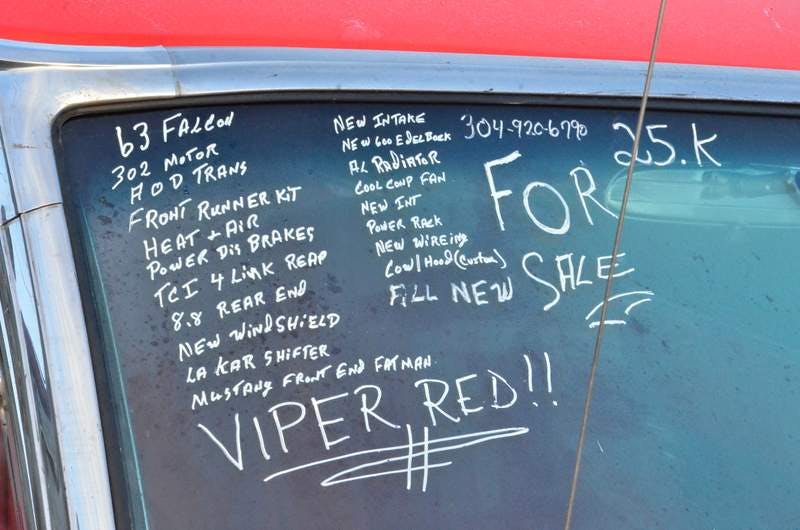 63 FALCON
302 MOTOR
AOD TRANS
FRONT RUNNER KIT
HEAT + AIR
POWER DIS BRAKES
TCI 4 LINK REAR
8.8 REAR END
NEW WINDSHIELD
LA KAR SHIFTER
MUSTANG FRONT END FATMAN
VIPER RED!!
NEW INTAKE
NEW 600 EDELBOCK
AL RADIATOR
COOL COMP FAN
NEW INT
POWER RACK
NEW WIREING
COWL HOOD (CUSTOM)
ALL NEW
304-920-6790
25.K
FOR
SALE